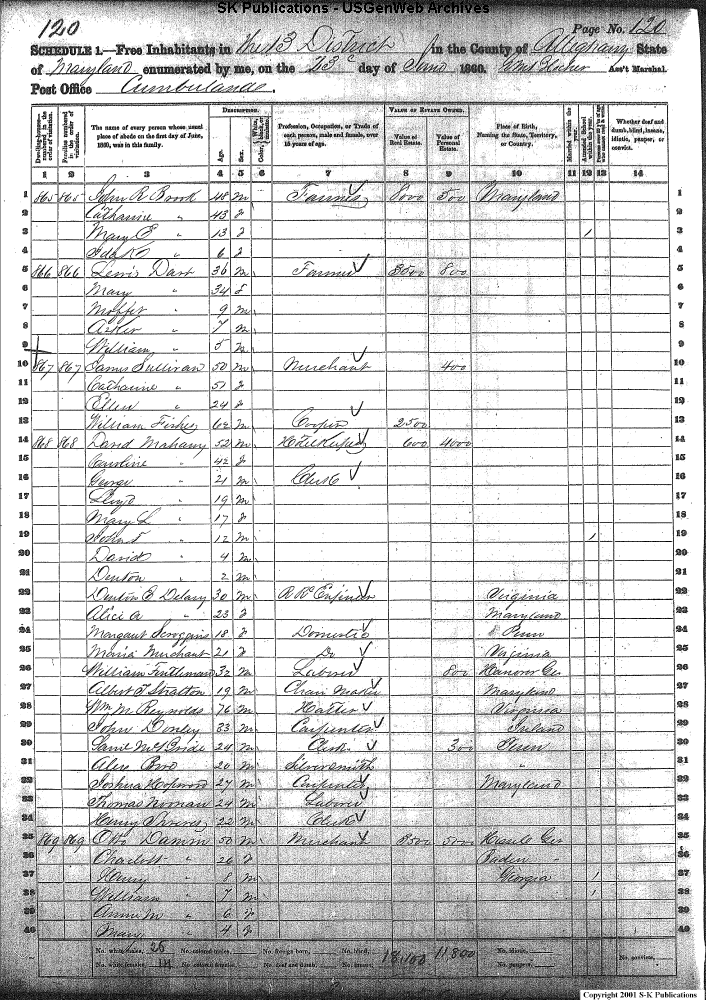 SK Publications - USGenWeb Archives
120
Page No. 120
SCHEDULE 1.—Free Inhabitants in The 13 District in the County of Alleghany State
of Maryland enumerated by me, on the 23 day of 1860. Ass't Marshal.
Post Office Cumberland.
DESCRIPTION. VALUE OF ESTATE OWNED.
Dwelling-houses—numbered in the order of visitation. Families numbered in the order of visitation. The name of every person whose usual place of abode on the first day of June, 1860, was in this family. Age. Sex. Color, Profession, Occupation, or Trade of each person, male and female, over 15 years of age. Value of Real Estate. Value of Personal Estate. Place of Birth, Naming the State, Territory, or Country. Married within the year. Attended School within the year. Whether deaf and dumb, blind, insane, idiotic, pauper, or convict.
1 2 3 4 5 6 7 8 9 10 11 12 13 14
1 865 865 John R Brook 48 m Farmer 8000 500 Maryland 1
2 Catharine " 43 f 2
3 Mary E " 13 f 1 3
4 " 6 f 4
5 866 866 Lewis Dart 36 m Farmer 3500 800 5
6 Mary " 34 f 6
7 Moffit " 9 m 7
8 " 7 m 8
9 William " 5 m 9
10 867 867 James Sullivan 50 m Merchant 400 10
11 Catharine " 51 f 11
12 Ellen " 24 f 12
13 William Fisher 62 m Cooper 2500 13
14 868 868 David Mahany 52 m Hotel Keeper 600 4000 14
15 Caroline " 42 f 15
16 George " 21 m Clerk 16
17 Lloyd " 19 m 17
18 Mary L " 17 f 18
19 John T " 12 m 1 19
20 David " 4 m 20
21 Denton " 2 m 21
22 Denton E Delany 30 m R R Engineer Virginia 22
23 Alice A " 23 f Maryland 23
24 Margaret Scroggins 18 f Domestic Penn 24
25 Maria Merchant 21 f Do Virginia 25
26 William 32 m Laborer 800 Hanover Ger 26
27 Albert T Stratton 19 m Chair Maker Maryland 27
28 Wm M Reynolds 76 m Hatter Virginia 28
29 John Donley 33 m Carpenter Ireland 29
30 Saml McBride 24 m Clerk 300 Penn 30
31 Alex 20 m Silversmith " 31
32 Joshua Hopwood 27 m Carpenter Maryland 32
33 Thomas Noonan 24 m Laborer 33
34 Henry 22 m Clerk 34
35 869 869 Otto Damm 50 m Merchant 3500 5000 Ger 35
36 Charlott " 26 f Baden " 36
37 Henry " 8 m Georgia 1 37
38 William " 7 m 1 38
39 Annie M " 6 f 39
40 Mary " 4 f 40
No. white males, 26 No. colored males, No. foreign born, No. blind, 18,100 11,800 No. idiotic, No. convicts,
No. white females, 14 No. colored females, No. deaf and dumb, No. insane, No. paupers,
Copyright 2001 S-K Publications